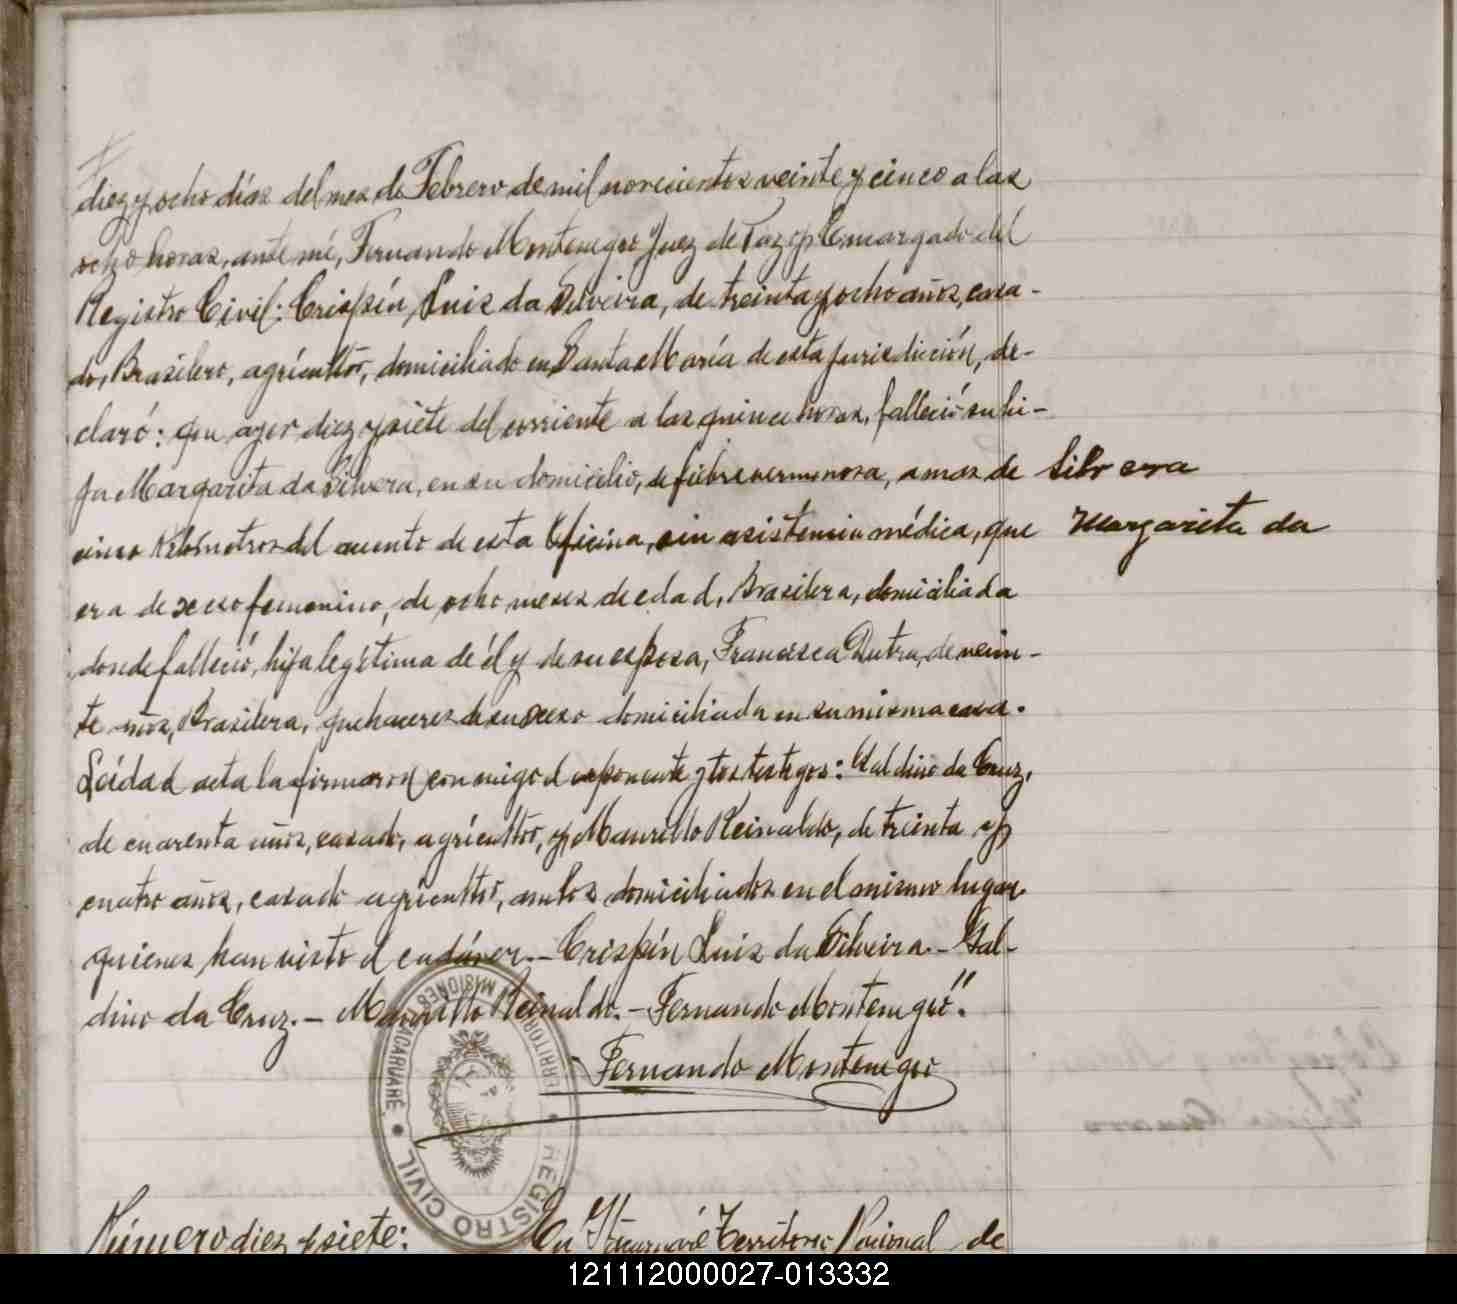 diez y ocho días del mes de Febrero de mil novecientos veinte y cinco a las
ocho horas, ante mí, Fernando Montenegro Juez de Paz y Encargado del
Registro Civil: Crispín Luis da Silveira, de treinta y ocho años, casa-
do, Brasilero, agricultor, domiciliado en Santa María de esta jurisdicción, de-
claró: que ayer diez y siete del corriente a las quince horas, falleció su hi-
ja Margarita da Silvera, en su domicilio, de fiebre verminosa, a mas de
cinco Kilómetros del asiento de esta Oficina, sin asistencia médica, que
era de sexo femenino, de ocho meses de edad, Brasilera, domiciliada
donde falleció, hija legítima de él y de su esposa, Francisca Dutra, de vein-
te años, Brasilera, quehaceres de su sexo domiciliada en su misma casa.
Leída el acta la firmaron conmigo el exponente y los testigos: Galdino da Cruz,
de cuarenta años, casado, agricultor, y Maurillo Reinaldo, de treinta y
cuatro años, casado agricultor, ambos domiciliados en el mismo lugar
quienes han visto el cadáver.- Crispín Luis da Silveira.- Gal-
dino da Cruz.- Maurillo Reinaldo.- Fernando Montenegro".
Fernando Montenegro
Silvera
Margarita da
REGISTRO CIVIL
TERRITORIO MISIONES
ITACARUARÉ
Número diez y siete: En Itacaruaré Territorio Nacional de
121112000027-013332